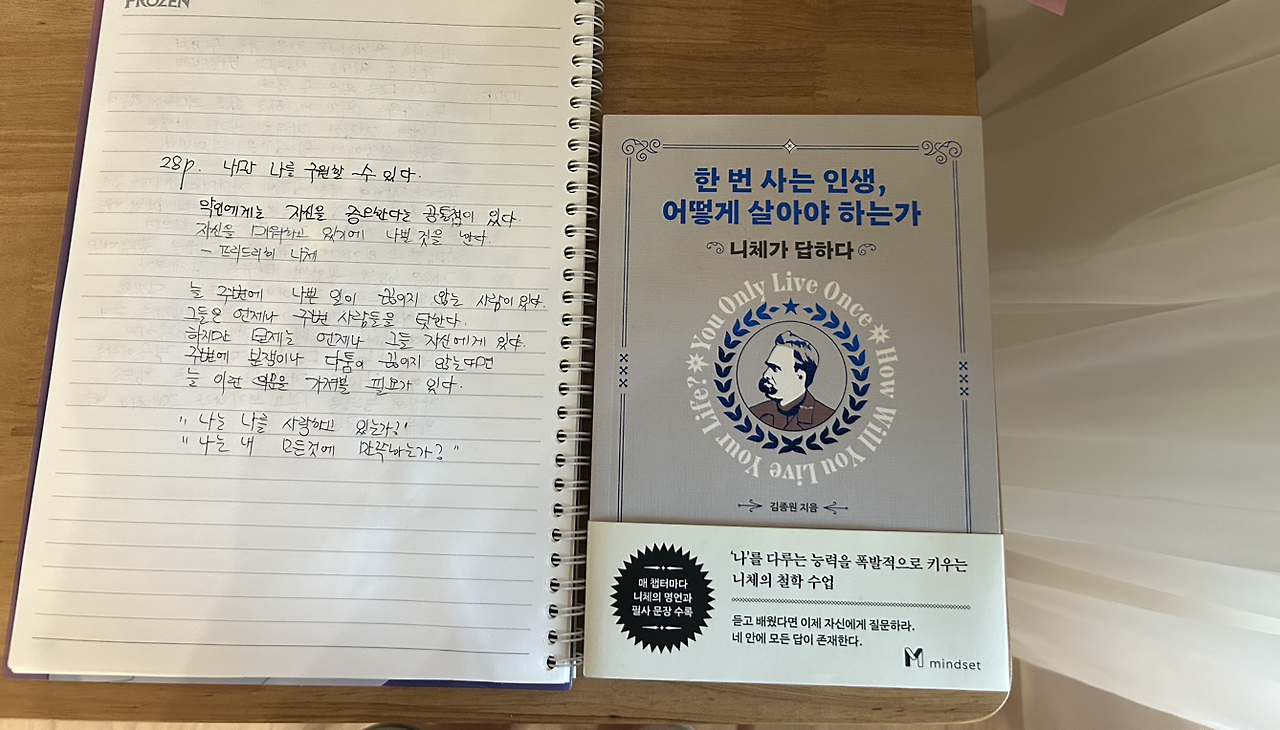 FROZEN
28p. 나만 나를 구원할 수 있다.
악인에게는 자신을 증오한다는 공통점이 있다.
자신을 미워하고 있기에 나쁜 것을 한다.
- 프리드리히 니체
늘 주변에 나쁜 일이 끊이지 않는 사람이 있다.
그들은 언제나 주변 사람들을 탓한다.
하지만 문제는 언제나 그들 자신에게 있다.
주변에 분쟁이나 다툼이 끊이지 않는다면
늘 이런 의문을 가져볼 필요가 있다.
"나는 나를 사랑하고 있는가?"
"나는 내 모든것에 만족하는가?"
한 번 사는 인생,
어떻게 살아야 하는가
니체가 답하다
You Only Live Once
How Will You Live Your Life?
김종원 지음
매 챕터마다
니체의 명언과
필사 문장 수록
'나'를 다루는 능력을 폭발적으로 키우는
니체의 철학 수업
듣고 배웠다면 이제 자신에게 질문하라.
네 안에 모든 답이 존재한다.
M mindset